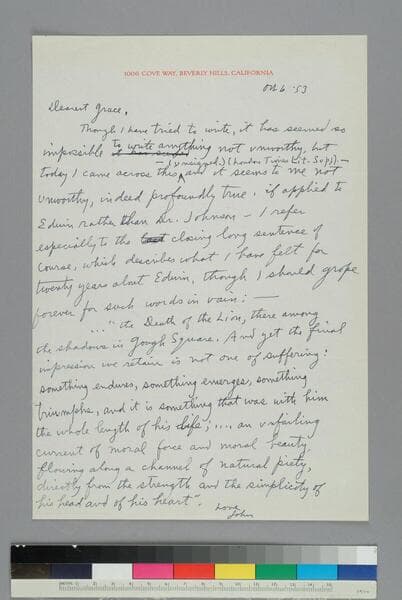 1006 COVE WAY, BEVERLY HILLS, CALIFORNIA
Oct 6 '53
Dearest Grace,
Though I have tried to write, it has seemed so
impossible to write anything not unworthy, but
– (unsigned) (London Times Lit. Sup.) –
today I came across this, and it seems to me not
unworthy, indeed profoundly true. if applied to
Edwin rather than Dr. Johnson – I refer
especially to the last closing long sentence of
course, which describes what I have felt for
twenty years about Edwin, though I should grope
forever for such words in vain: –
..." the Death of the Lion, there among
the shadows in Gough Square. And yet the final
impression we retain is not one of suffering:
something endures, something emerges, something
triumphs, and it is something that was with him
the whole length of his life; .... an unfailing
current of moral force and moral beauty,
flowing along a channel of natural piety,
directly from the strength and the simplicity of
his head and of his heart".
Love
John